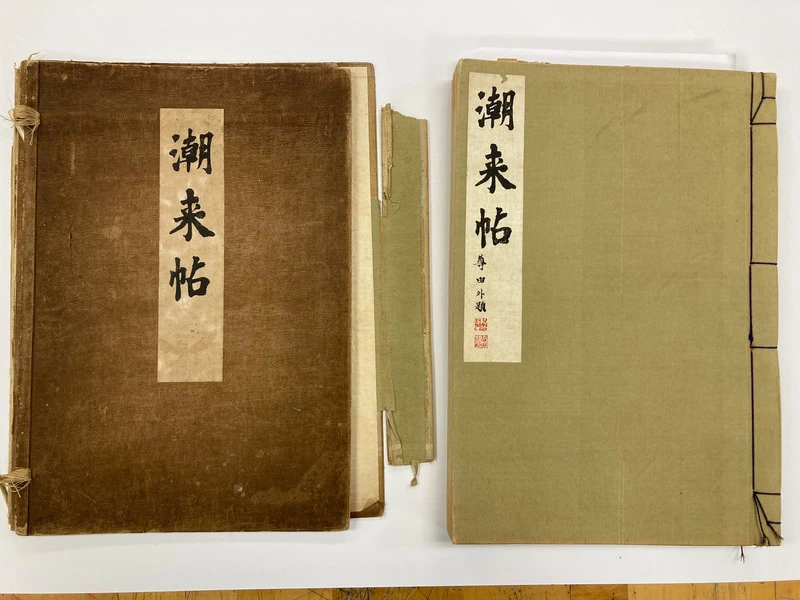 潮来帖
潮来帖